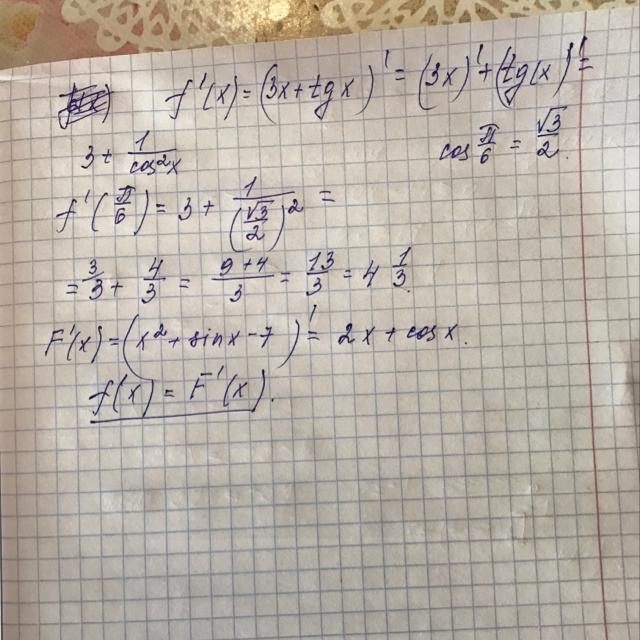 f'(x) = (3x + tg x)' = (3x)' + (tg(x)' =
3 + 1/cos²x
cos π/6 = √3/2.
f'(π/6) = 3 + 1/(√3/2)² =
= 3/3 + 4/3 = 9+4/3 = 13/3 = 4 1/3.
F'(x) = (x² + sinx - 7)' = 2x + cos x.
f(x) = F'(x).